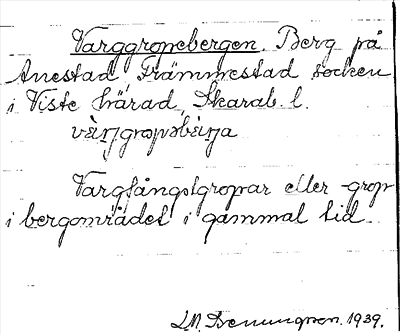 Varggropebergen. Berg på
Anestad, Främmestad socken
i Viste härad, Skarab. l.
Vargfångstgropar eller -grop
i bergområdet i gammal tid.
1939.